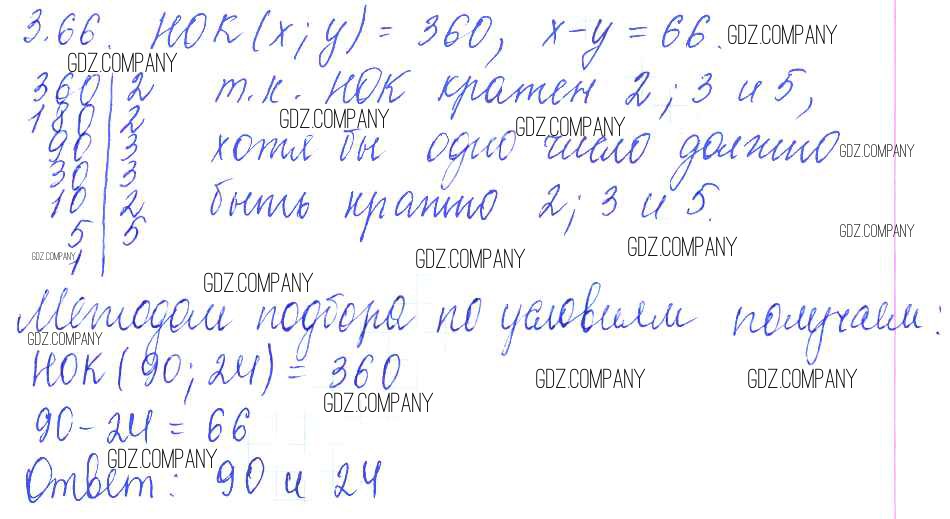 3.66. НОК(x; y) = 360, x-y = 66. GDZ.COMPANY
GDZ.COMPANY
360 | 2 т.к. НОК кратен 2; 3 и 5,
180 | 2 GDZ.COMPANY GDZ.COMPANY
90 | 3 хотя бы одно число должно GDZ.COMPANY
30 | 3
10 | 2 быть кратно 2; 3 и 5.
5 | 5 GDZ.COMPANY GDZ.COMPANY
GDZ.COMPANY 1 | GDZ.COMPANY
GDZ.COMPANY
Методом подбора по условиям получаем:
GDZ.COMPANY
НОК(90; 24) = 360
GDZ.COMPANY GDZ.COMPANY GDZ.COMPANY
90-24 = 66
GDZ.COMPANY
Ответ: 90 и 24